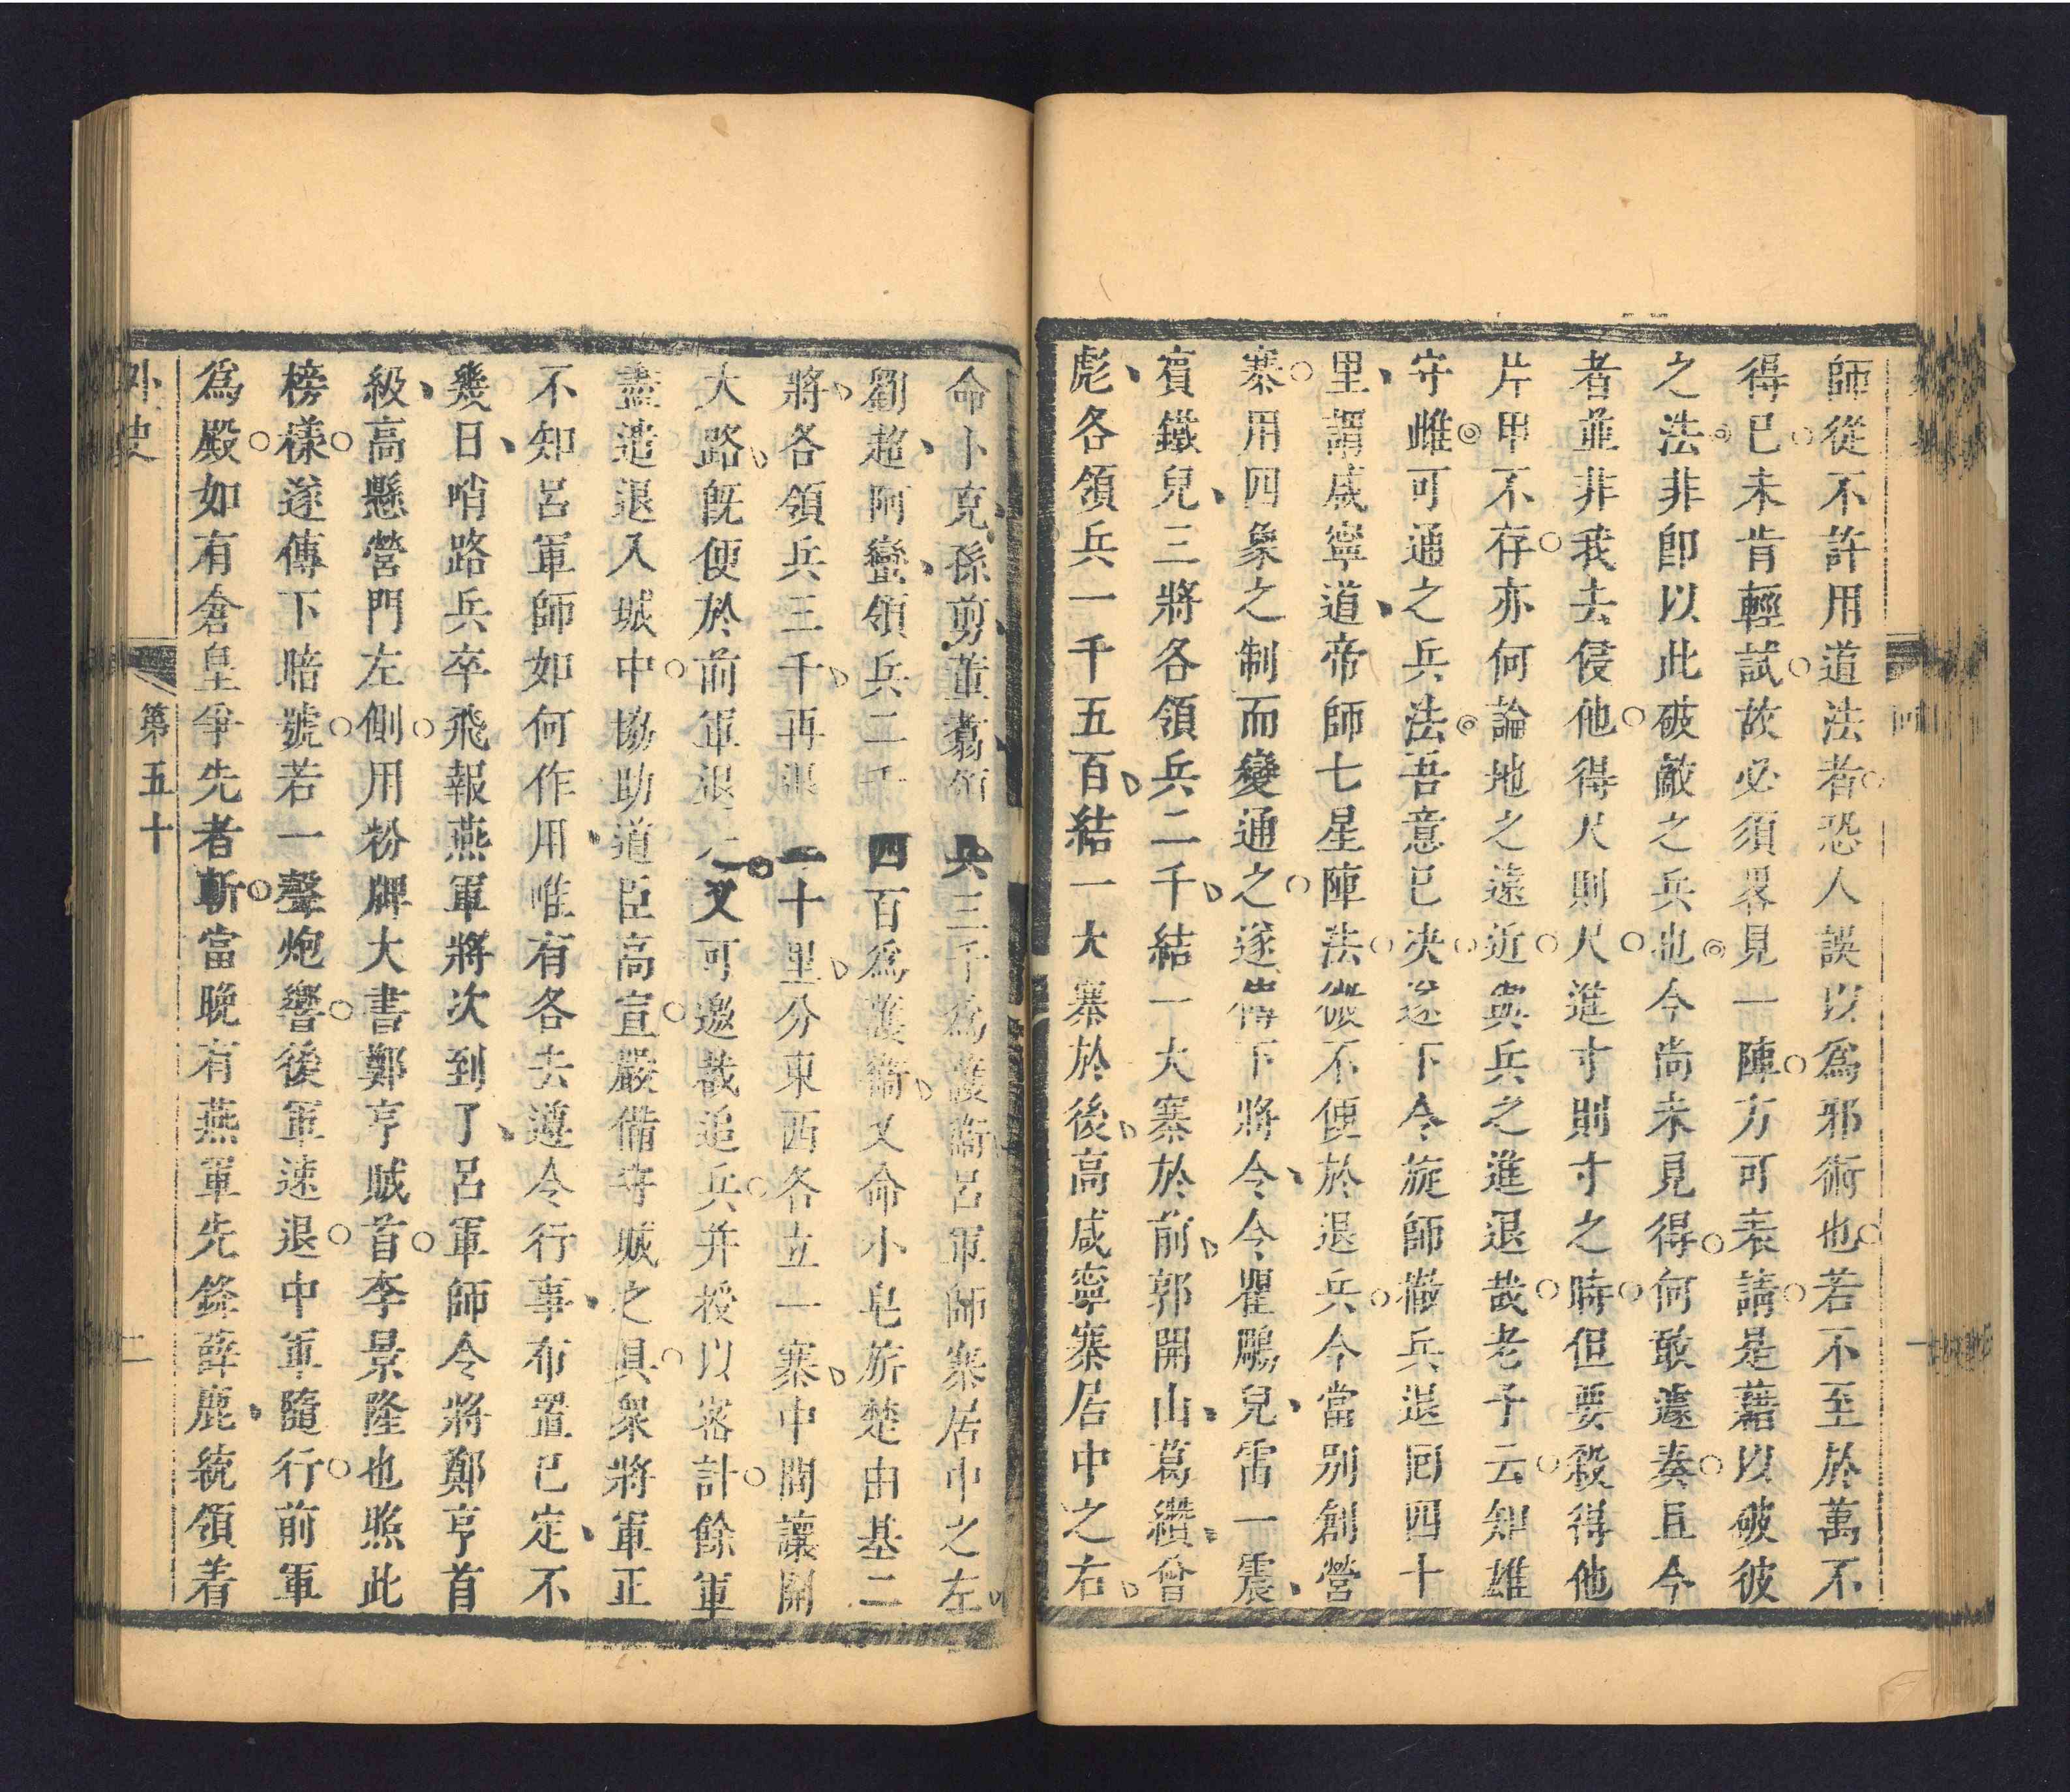 師從不許用道法者恐人誤以爲邪術也若不至於萬不
得已未肯輕試故必須畧見一陣方可表請是藉以破彼
之法非卽以此破敵之兵也今尚未見得何敢遽奏且今
者並非我去侵他得尺則尺進寸則寸之時但要殺得他
片甲不存亦何論地之遠近與兵之進退哉老子云知雄
守雌可通之兵法吾意已决遂下令旋師撤兵退囘四十
里謂咸寧道帝師七星陣法微不便於退兵今當别創營
寨用四象之制而變通之遂傳下將令令瞿鵰兒雷一震
賓鐵兒三將各領兵二千結一大寨於前郭開山葛纘曾
彪各領兵一千五百結一大寨於後高咸寧寨居中之右
命卜克孫剪董翥 兵三千爲護衞呂軍師寨居中之左
劉超阿蠻領兵二千四百爲護衞又命小皂旂楚由基二
將各領兵三千再退二十里分東西各立一寨中間讓開
大路旣便於前軍退 又可邀截追兵并授以密計餘軍
盡遣退入城中協助道臣高宣嚴備守城之具衆將軍正
不知呂軍師如何作用唯有各去遵令行事布置已定不
幾日哨路兵卒飛報燕軍將次到了呂軍師令將鄭亨首
級高懸營門左側用粉牌大書鄭亨賊首李景隆也照此
榜樣遂傳下暗號若一聲炮響後軍速退中軍隨行前軍
爲殿如有倉皇爭先者斬當晚有燕軍先鋒薛鹿統領着
外史
第五十
二